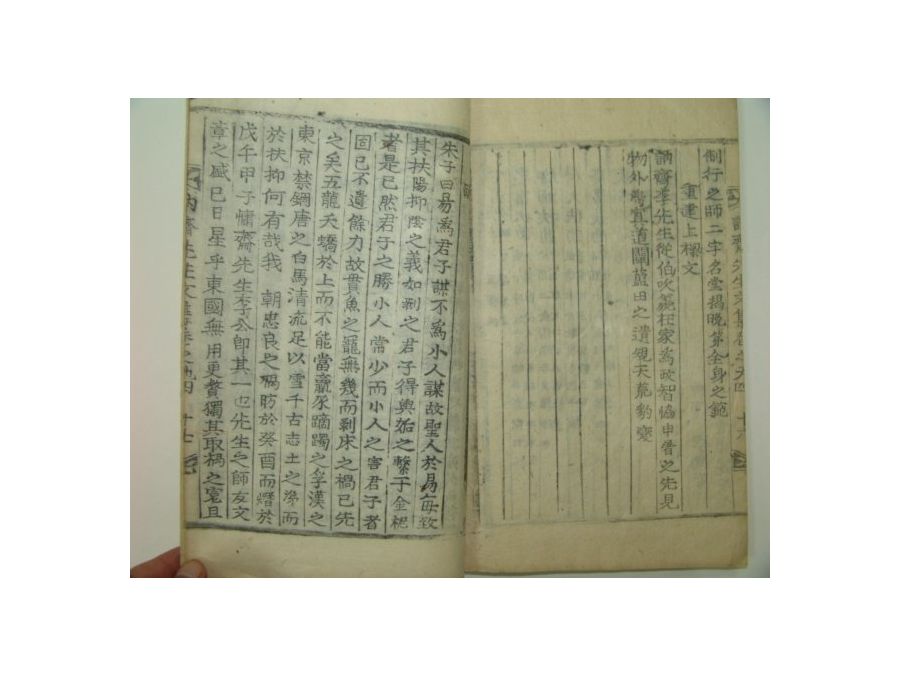 制行之師二字名堂揭晩第全身之範
重建上樑文
訥齋李先生從伯吹箎在家爲政智恊申屠之先見
物外寄宜道關藍田之遺規天荒豹變
訥齋先生文集卷之四 十六
朱子曰易爲君子謀不爲小人謀故聖人於易每致
其扶陽抑陰之義如剥之君子得輿姤之繫于金柅
者是已然君子之勝小人常少而小人之害君子者
固已不遺餘力故貫魚之寵無幾而剥床之禍已先
之矣五龍夭矯於上而不能當羸豕蹢躅之孚漢之
東京禁錮唐之白馬清流足以雪千古志士之涕而
於扶抑何有哉我 朝忠良之禍昉於癸酉而熸於
戊午甲子慵齋先生李公卽其一也先生之師友文
章之盛已日星乎東國無用更贅獨其取禍之寃且
訥齋先生文集卷之四 十七